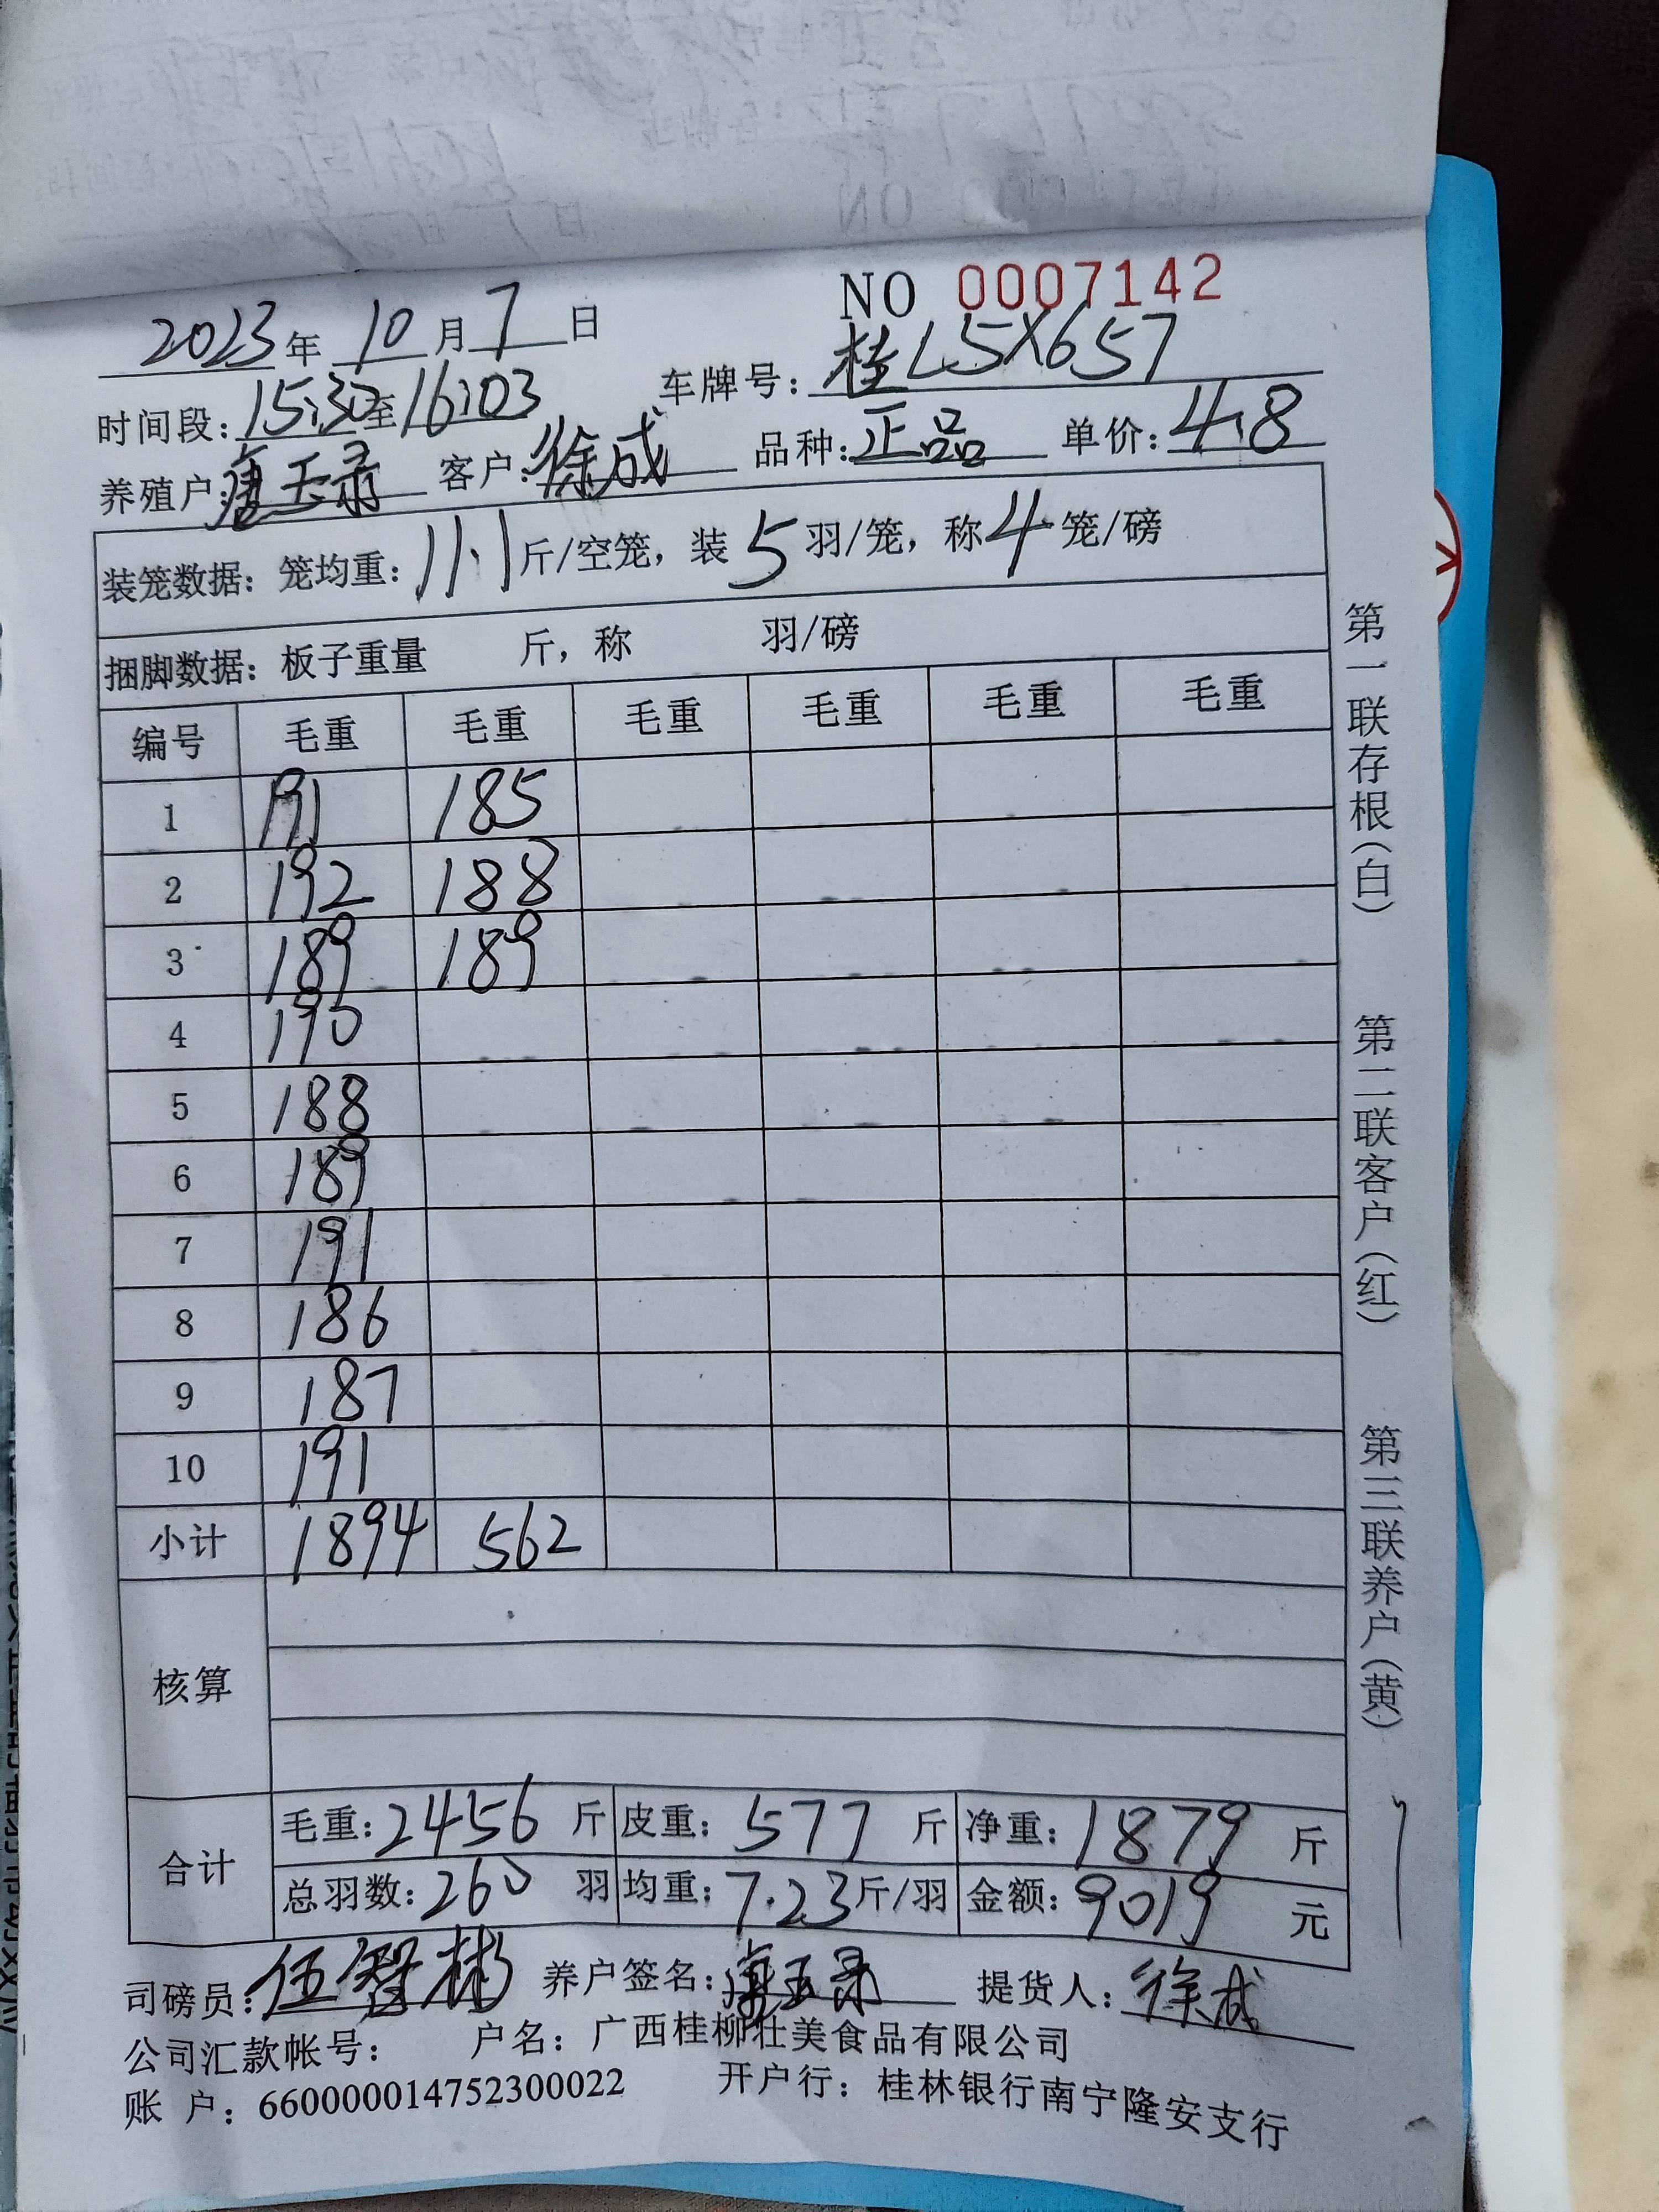 NO 0007142
2023年 10月7日
时间段：15:30至16:03 车牌号：桂L5X657
养殖户：唐玉录 客户：徐成 品种：正品 单价：4.8
装笼数据：笼均重：11.1斤/空笼，装5羽/笼，称4笼/磅
捆脚数据：板子重量 斤，称 羽/磅
编号 毛重 毛重 毛重 毛重 毛重 毛重
1 191 185
2 192 188
3 189 189
4 190
5 188
6 189
7 191
8 186
9 187
10 191
小计 1894 562
核算
合计
毛重：2456斤 皮重：577斤 净重：1879斤
总羽数：260羽 均重：7.23斤/羽 金额：9019元
司磅员：伍智彬 养户签名：唐玉录 提货人：徐成
公司汇款帐号： 户名：广西桂柳壮美食品有限公司
账 户：660000014752300022 开户行：桂林银行南宁隆安支行
第一联存根（白） 第二联客户（红） 第三联养户（黄）